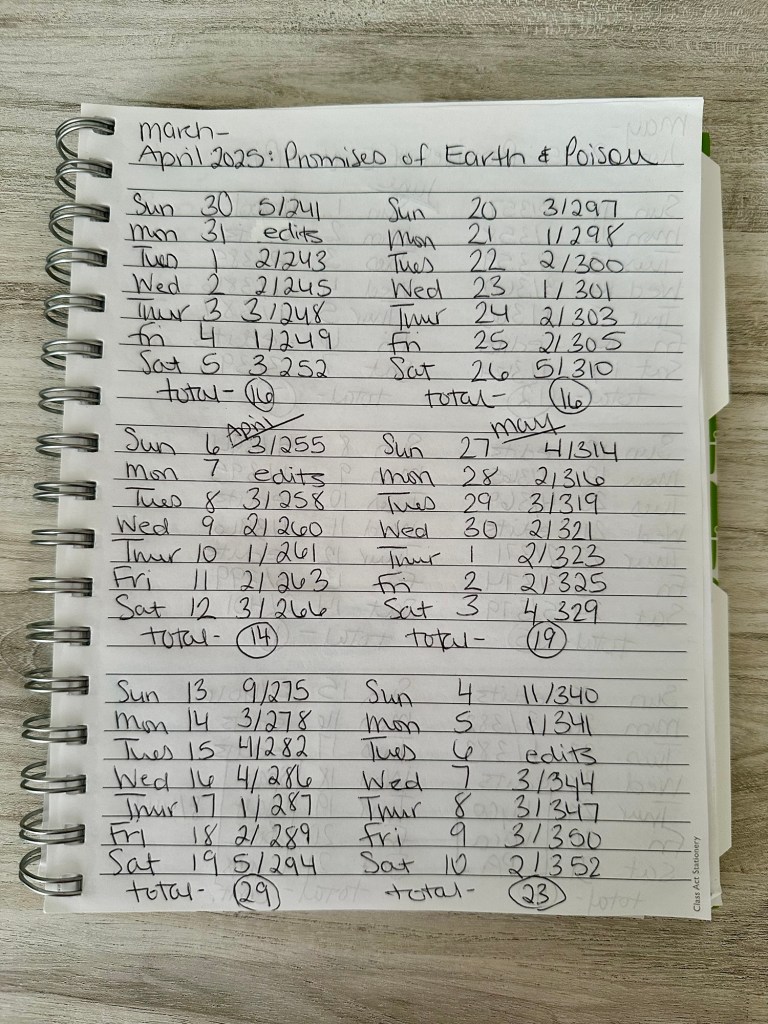 march-
April 2025: Promises of Earth & Poison
Sun 30 5/241
mon 31 edits
Tues 1 2/243
Wed 2 2/245
Thur 3 3/248
Fri 4 1/249
Sat 5 3 252
total- 16
April
Sun 6 3/255
Mon 7 edits
Tues 8 3/258
Wed 9 2/260
Thur 10 1/261
Fri 11 2/263
Sat 12 3/266
total- 14
Sun 13 9/275
Mon 14 3/278
Tues 15 4/282
Wed 16 4/286
Thur 17 1/287
Fri 18 2/289
Sat 19 5/294
total- 29
Sun 20 3/297
Mon 21 1/298
Tues 22 2/300
Wed 23 1/301
Thur 24 2/303
Fri 25 2/305
Sat 26 5/310
total- 16
may
Sun 27 4/314
Mon 28 2/316
Tues 29 3/319
Wed 30 2/321
Thur 1 2/323
Fri 2 2/325
Sat 3 4 329
total- 19
Sun 4 11/340
Mon 5 1/341
Tues 6 edits
Wed 7 3/344
Thur 8 3/347
Fri 9 3/350
Sat 10 2/352
total- 23
Class Act Stationery